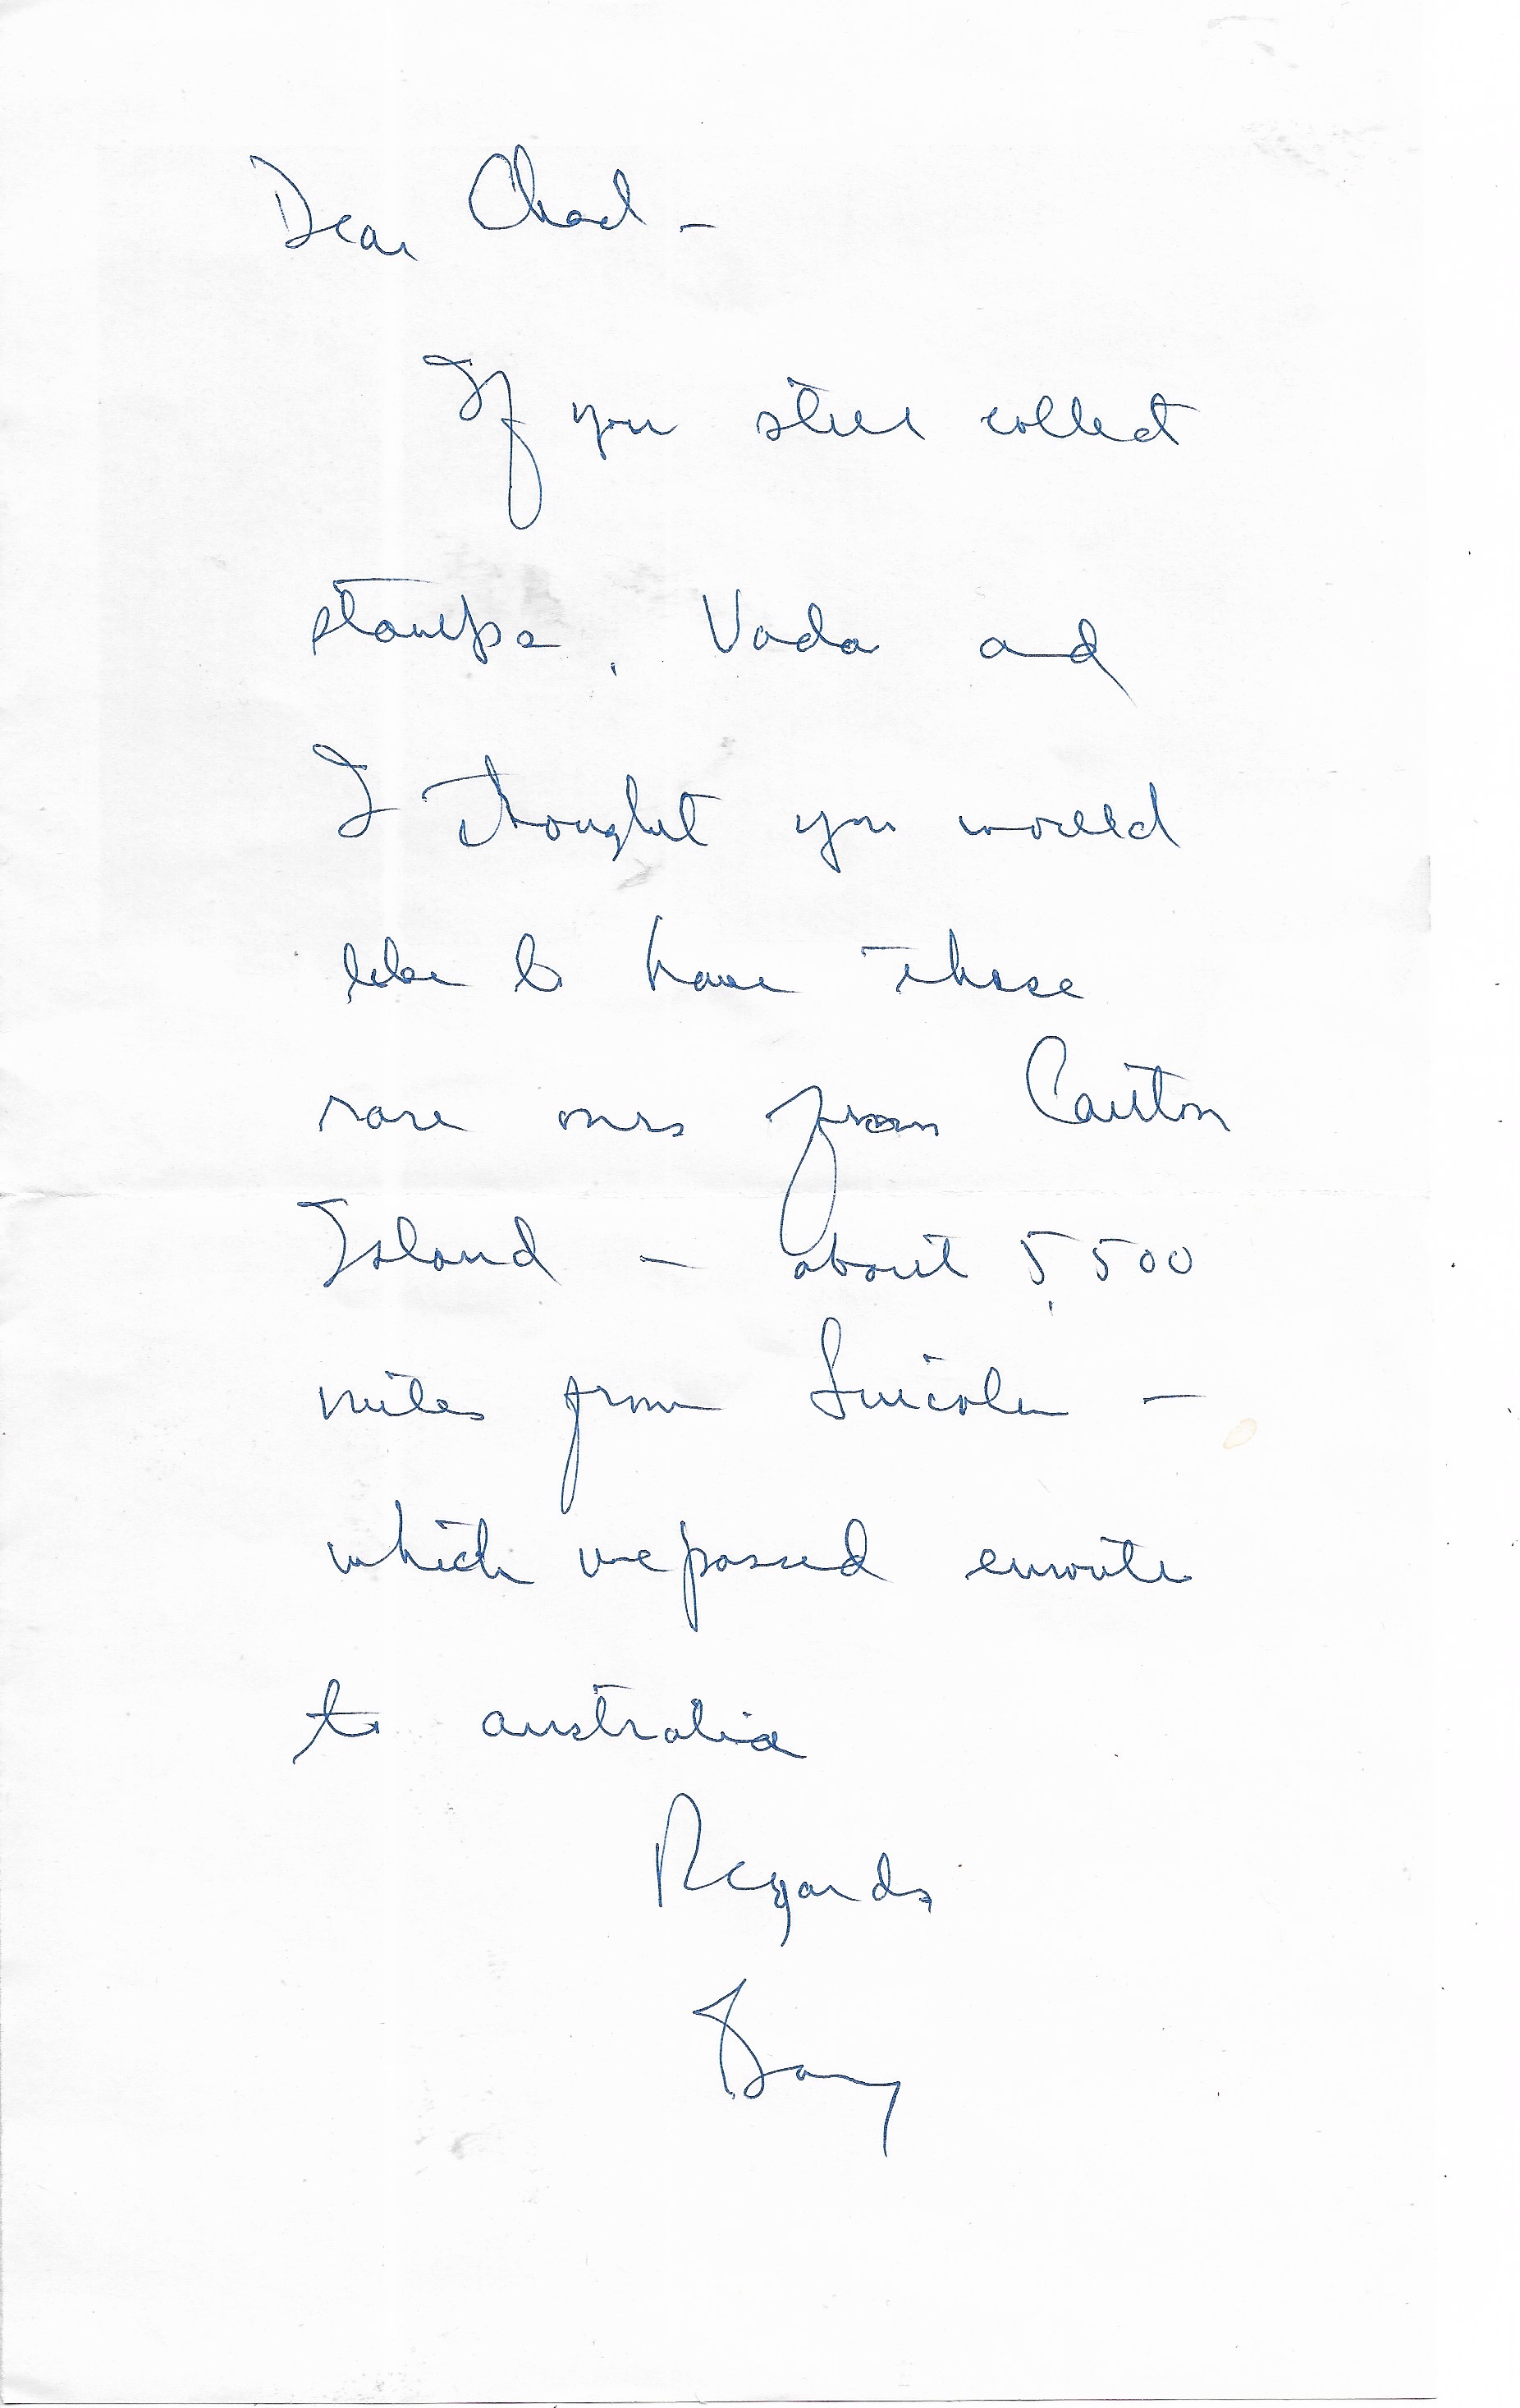 Dear Chad -
If you still collect
stamps, Vada and
I thought you would
like to have these
rare ones from Canton
Island - about 5,500
miles from Lincoln -
which we passed enroute
to australia
Regards